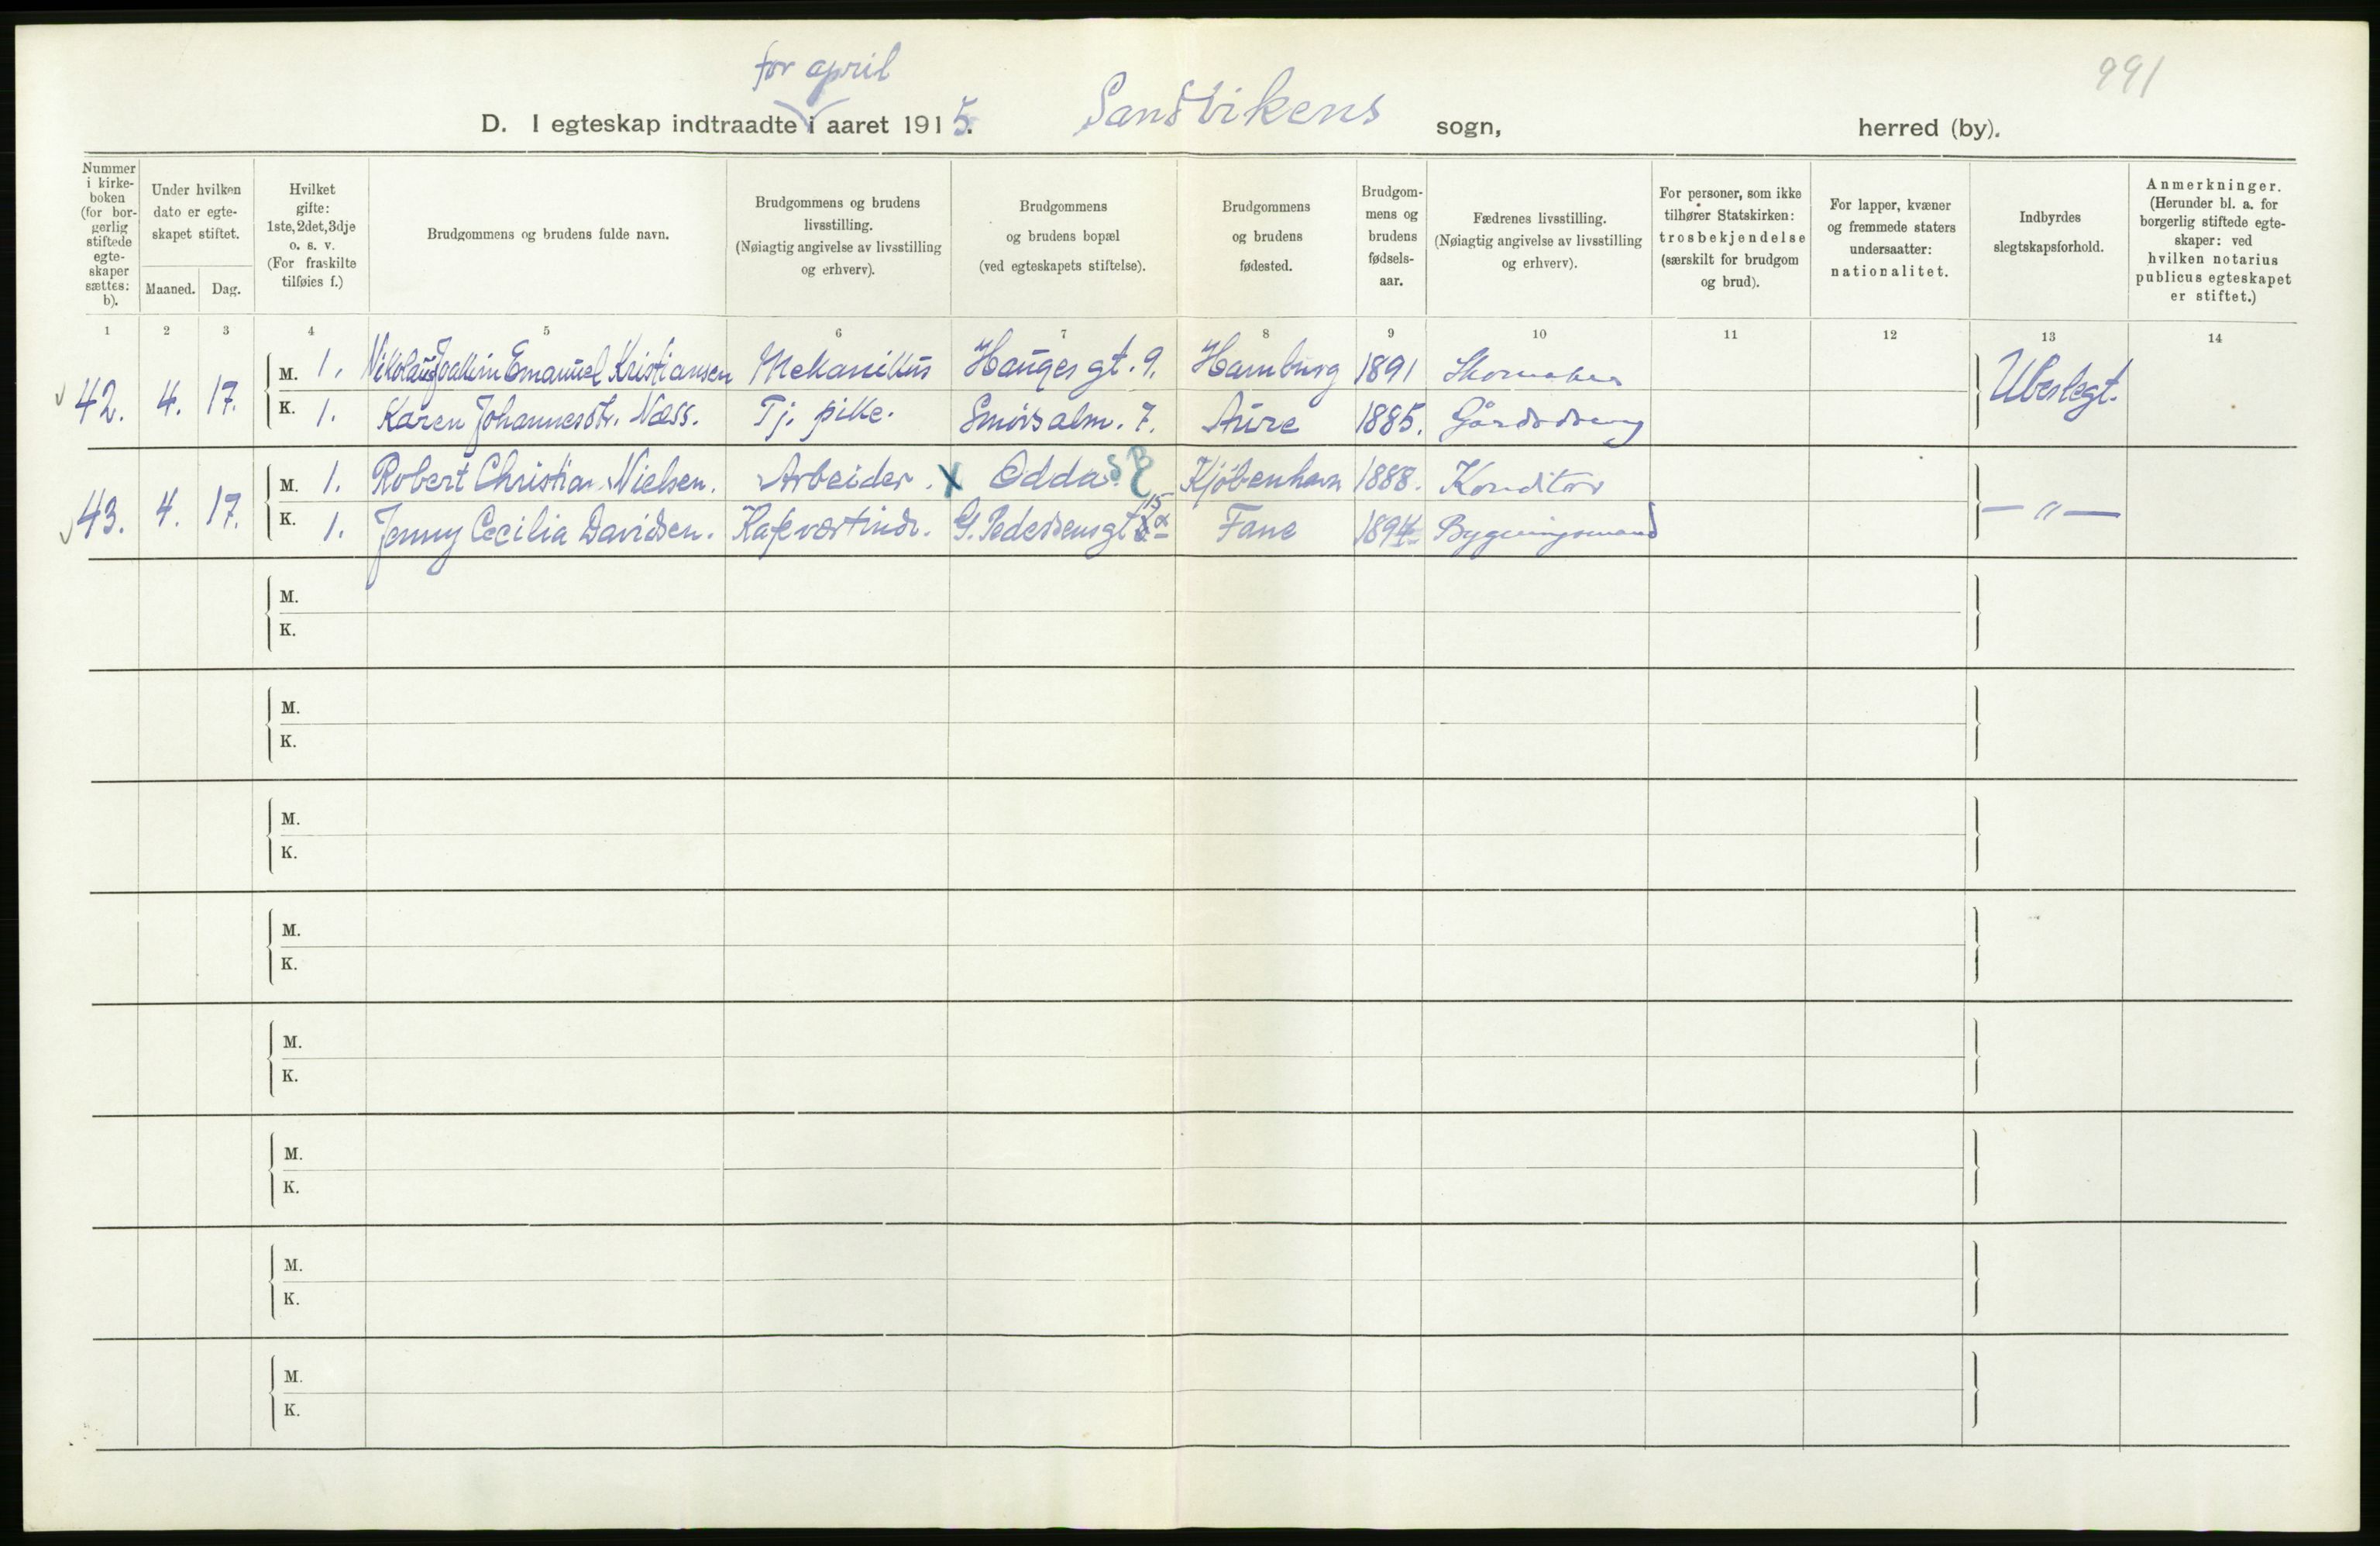 for april
991
D. I egteskap indtraadte i aaret 1915. Sandvikens sogn, herred (by).
Nummer i kirke-boken (for bor-gerlig stiftede egte-skaper sættes: b).
Under hvilken dato er egte-skapet stiftet.
Maaned. Dag.
Hvilket gifte: 1ste, 2det, 3dje o. s. v. (For fraskilte tilføies f.)
Brudgommens og brudens fulde navn.
Brudgommens og brudens livsstilling. (Nøiagtig angivelse av livsstilling og erhverv).
Brudgommens og brudens bopæl (ved egteskapets stiftelse).
Brudgommens og brudens fødested.
Brudgom-mens og brudens fødsels-aar.
Fædrenes livsstilling. (Nøiagtig angivelse av livsstilling og erhverv).
For personer, som ikke tilhører Statskirken: trosbekjendelse (særskilt for brudgom og brud).
For lapper, kvæner og fremmede staters undersaatter: nationalitet.
Indbyrdes slegtskapsforhold.
Anmerkninger. (Herunder bl. a. for borgerlig stiftede egte-skaper: ved hvilken notarius publicus egteskapet er stiftet.)
1 2 3 4 5 6 7 8 9 10 11 12 13 14
42. 4. 17. M. 1. Nikolaus Joakim Emanuel Kristiansen Mekanikus Hauges gt. 9. Hamburg 1891 Skomaker Ubeslegt.
K. 1. Karen Johannesdtr. Næss. Tj. pike. Smørsalm. 7. Aure 1885. Gårdbr
43. 4. 17. M. 1. Robert Christian Nielsen. Arbeider. X Odda. Kjøbenhavn 1888. Konditor — " —
K. 1. Jenny Cecilia Davidsen. Kafeværtinde. G. Pedersens gt 15 Fane 1894 Bygningsmand
M.
K.
M.
K.
M.
K.
M.
K.
M.
K.
M.
K.
M.
K.
M.
K.